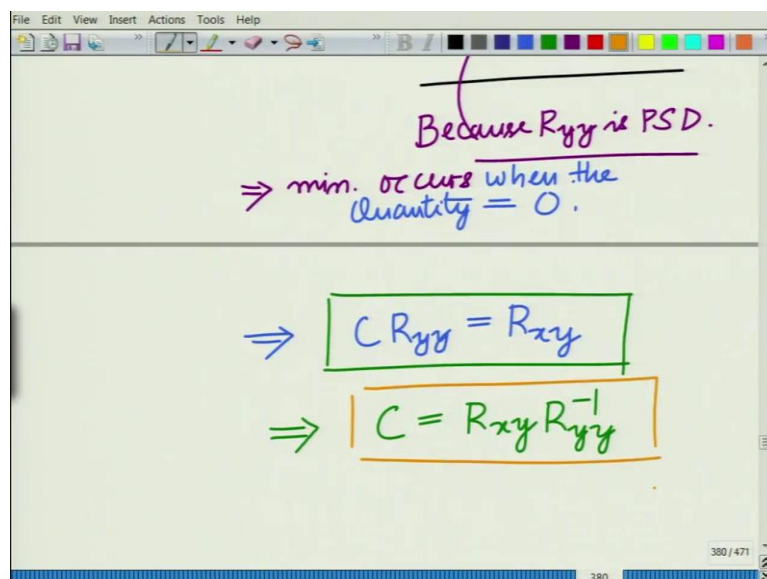 File Edit View Insert Actions Tools Help
B I
Because Ryy is PSD.
⇒ min. occurs when the
Quantity = 0.
⇒ C Ryy = Rxy
⇒ C = Rxy Ryy^-1
380 / 471
380